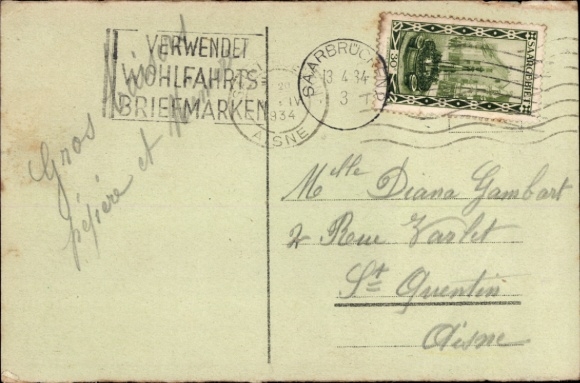 VERWENDET
WOHLFAHRTS-
BRIEFMARKEN
SAARBRÜCKEN
13.4.34
3
1934
AISNE
SAARGEBIET
30
Gros
et
Melle Diana Gambart
2 Rue Varlet
St Quentin
Aisne